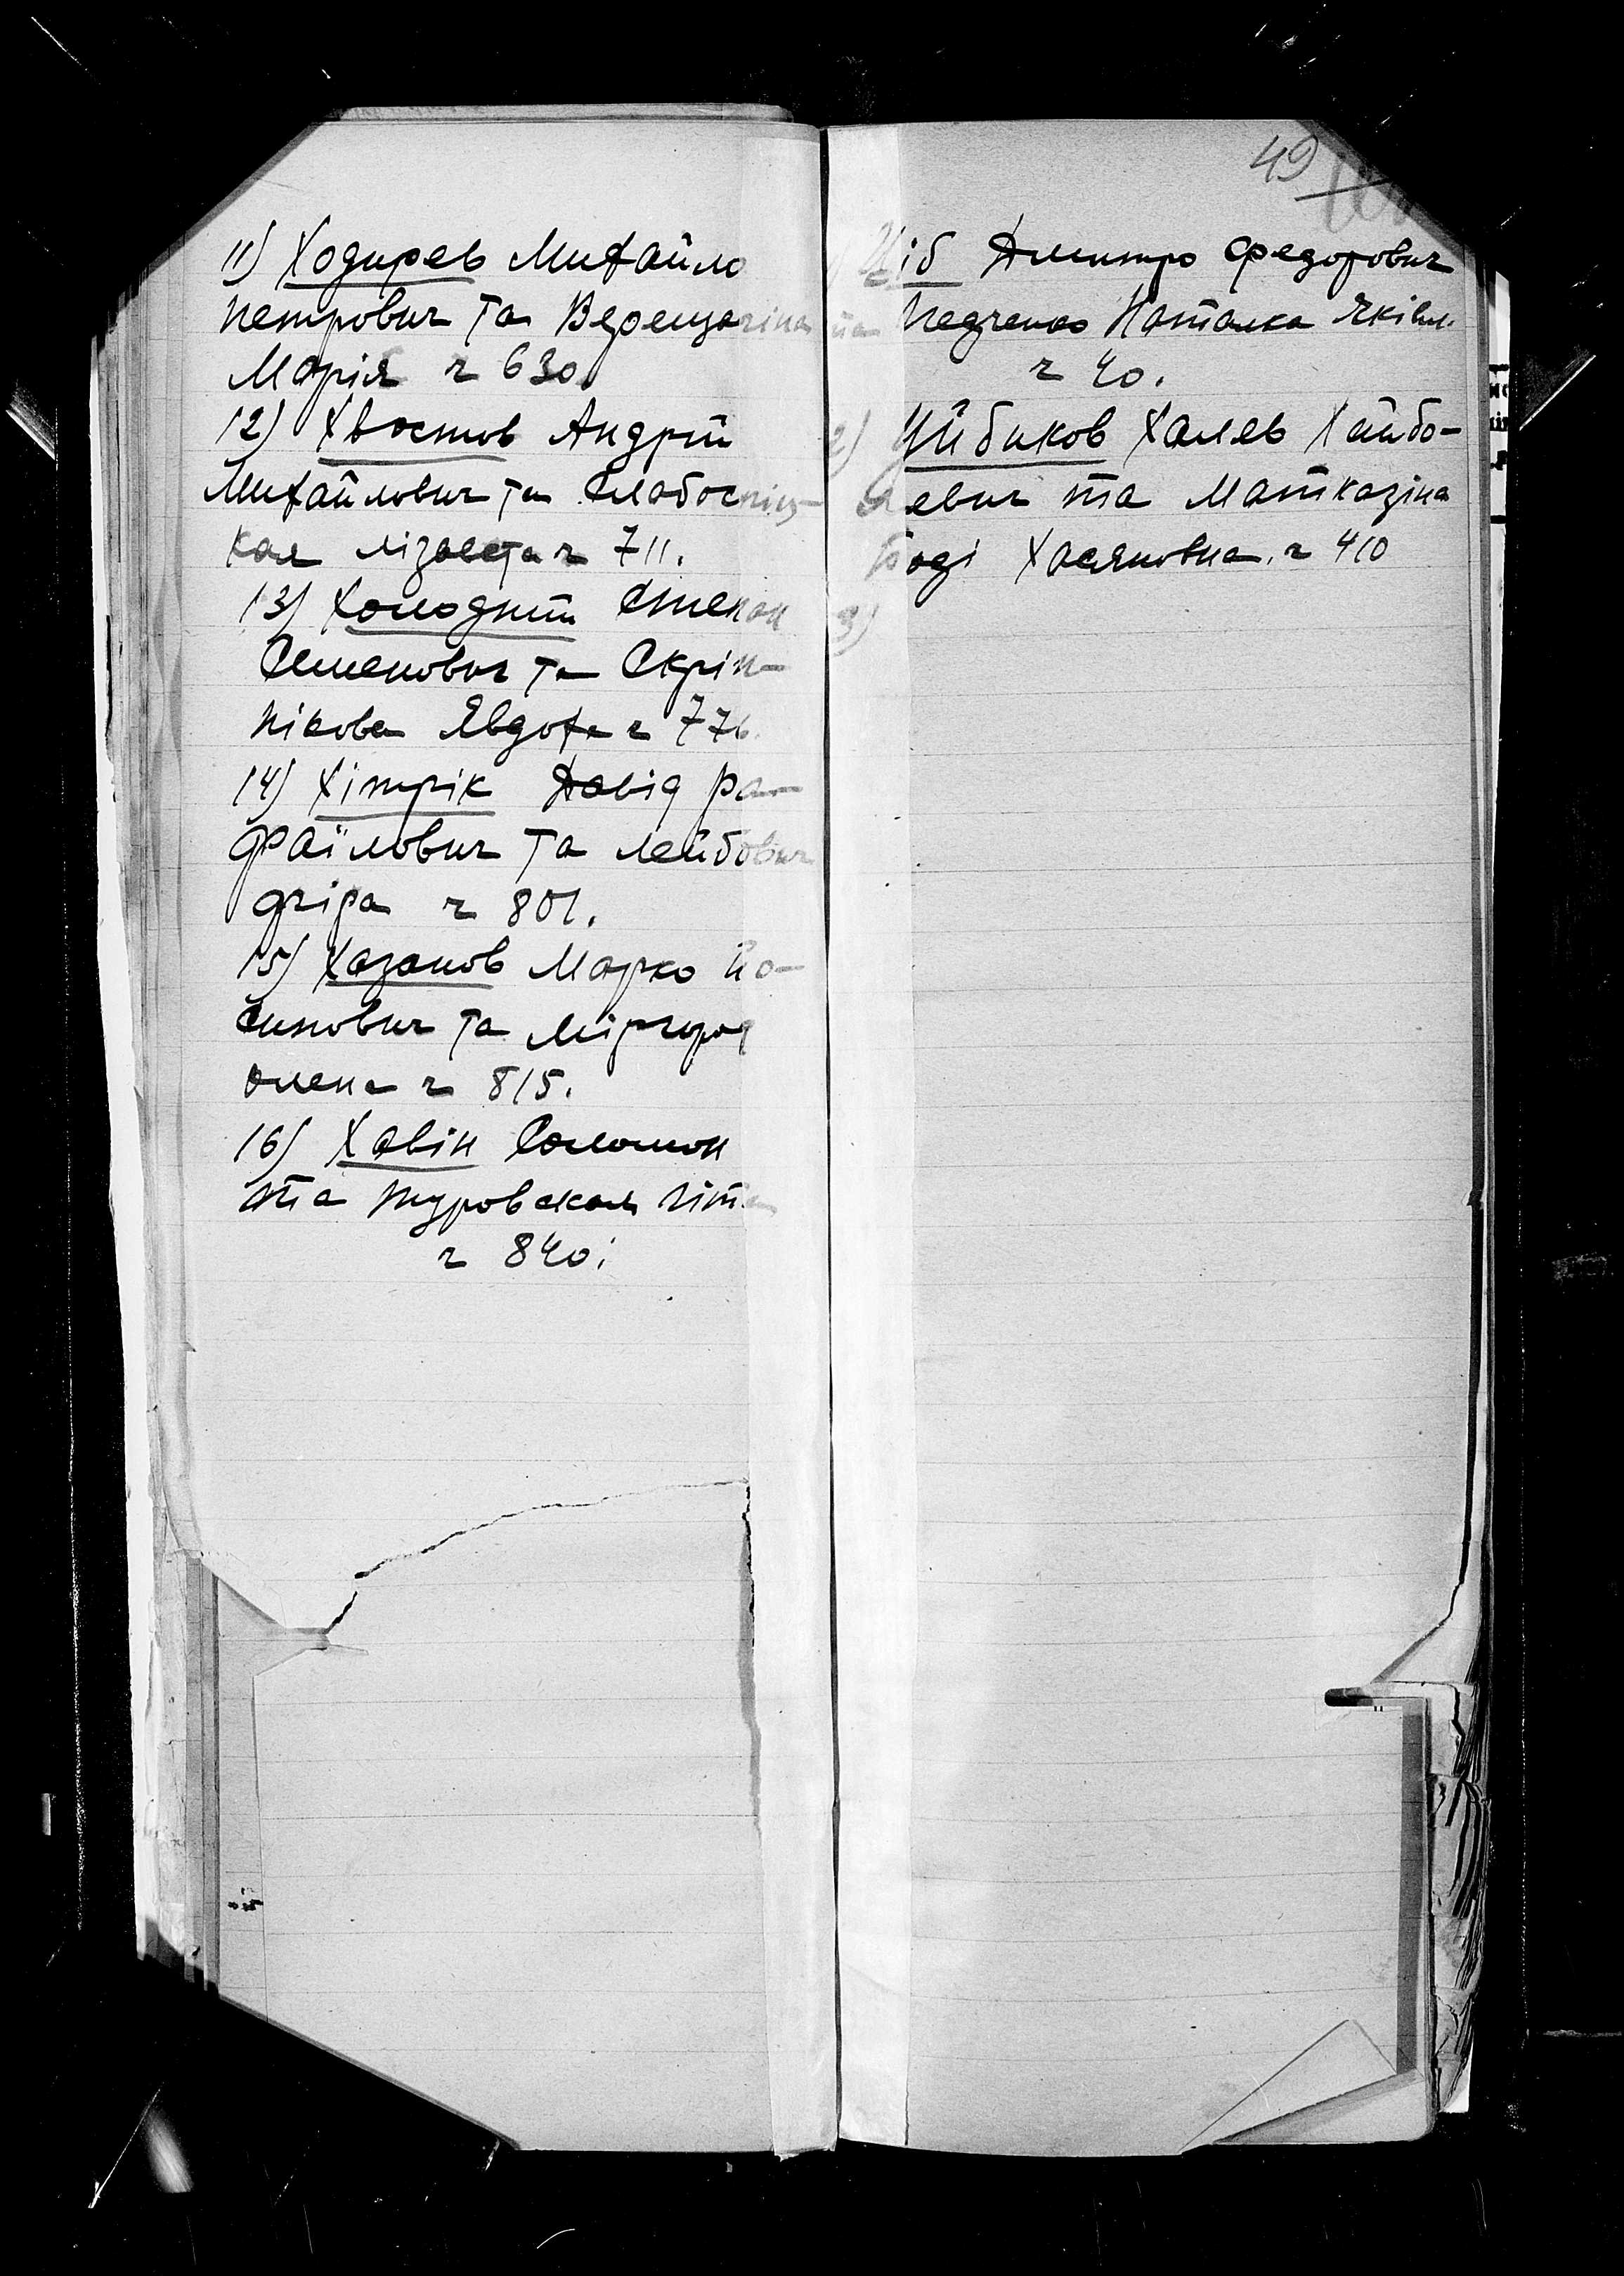 11) Ходирев Михайло
Петрович та Верещагіна
Марія ч 630.
12) Хвостов Андрій
Михайлович та Слабоспіц-
кая Лізавета ч 711.
13) Холодний Степан
Семенович та Скріп-
нікова Явдоха ч 776.
14) Хітрік Давід Ра-
фаїлович та Лейбович
Дхіра ч 801.
15) Хазанов Марко Йо-
сипович та Міргород
Олена ч 815.
16) Хавін Соломон
та Туровская Гіта
ч 840.
49
Ціб Дмитро Федорович
та Недченко Наталка Яківл.
ч 40.
2) Цйбиков Халев Хайбо-
левич та Матказіна
Хасяновна. ч 410
3)